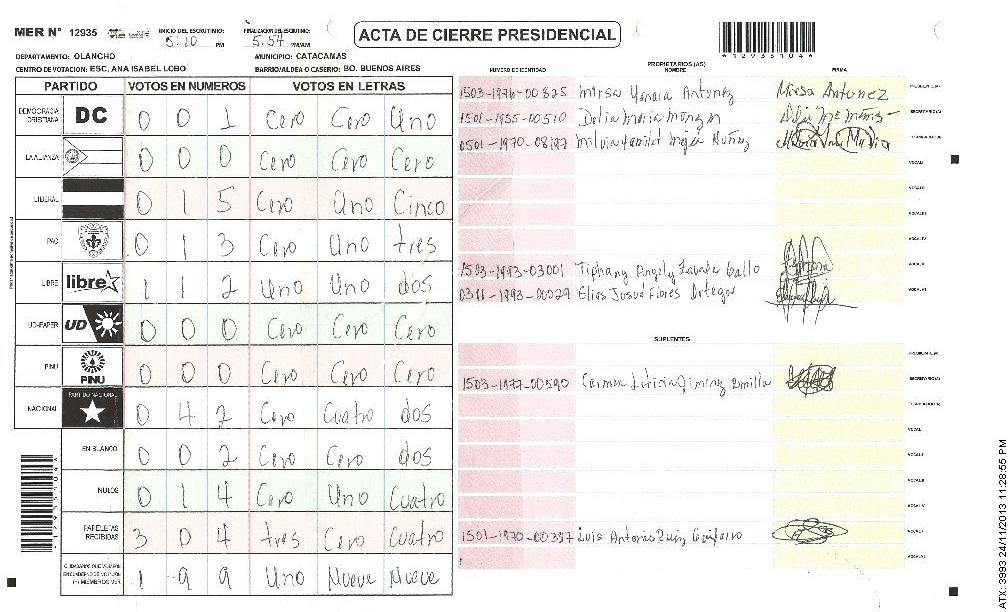 MER N° 12935 INICIO DEL ESCRUTINIO: 5:10 PM FINALIZACION DEL ESCRUTINIO: 5:54 PM/AM ACTA DE CIERRE PRESIDENCIAL *12935104*
DEPARTAMENTO: OLANCHO MUNICIPIO: CATACAMAS
CENTRO DE VOTACION: ESC. ANA ISABEL LOBO BARRIO/ALDEA O CASERIO: BO. BUENOS AIRES
PARTIDO VOTOS EN NUMEROS VOTOS EN LETRAS
DEMOCRACIA CRISTIANA DC 0 0 1 Cero Cero Uno
LA ALIANZA 0 0 0 Cero Cero Cero
LIBERAL 0 1 5 Cero Uno Cinco
PAC 0 1 3 Cero Uno tres
LIBRE libre 1 1 2 Uno Uno dos
UD-FAPER UD 0 0 0 Cero Cero Cero
PINU PINU 0 0 0 Cero Cero Cero
NACIONAL PARTIDO NACIONAL 0 4 2 Cero Cuatro dos
EN BLANCO 0 0 2 Cero Cero dos
NULOS 0 1 4 Cero Uno Cuatro
PAPELETAS RECIBIDAS 3 0 4 tres Cero Cuatro
CIUDADANOS QUE VOTARON EN CUADERNO DE VOTACION (+) MIEMBROS MER 1 9 9 Uno Nueve Nueve
PROPIETARIOS (AS)
NUMERO DE IDENTIDAD NOMBRE FIRMA
1503-1976-00825 Antunez Mirsa Antunez PRESIDENTE(A)
1501-1955-00510 Delia Maria SECRETARIO(A)
0501-1970- Mejia Nuñez
VOCAL I
VOCAL II
VOCAL III
VOCAL IV
1503-1993-03001 Tiphany Angely Gallo VOCAL V
1993-00029 Elias Josué Flores Ortega VOCAL VI
SUPLENTES
PRESIDENTE(A)
1503-1977-00590 Carmen Leticia Jimenez SECRETARIO(A)
VOCAL I
VOCAL II
VOCAL III
VOCAL IV
1501-1970-00397 Luis Antonio Ruiz VOCAL V
VOCAL VI
ATX: 3993 24/11/2013 11:28:55 PM